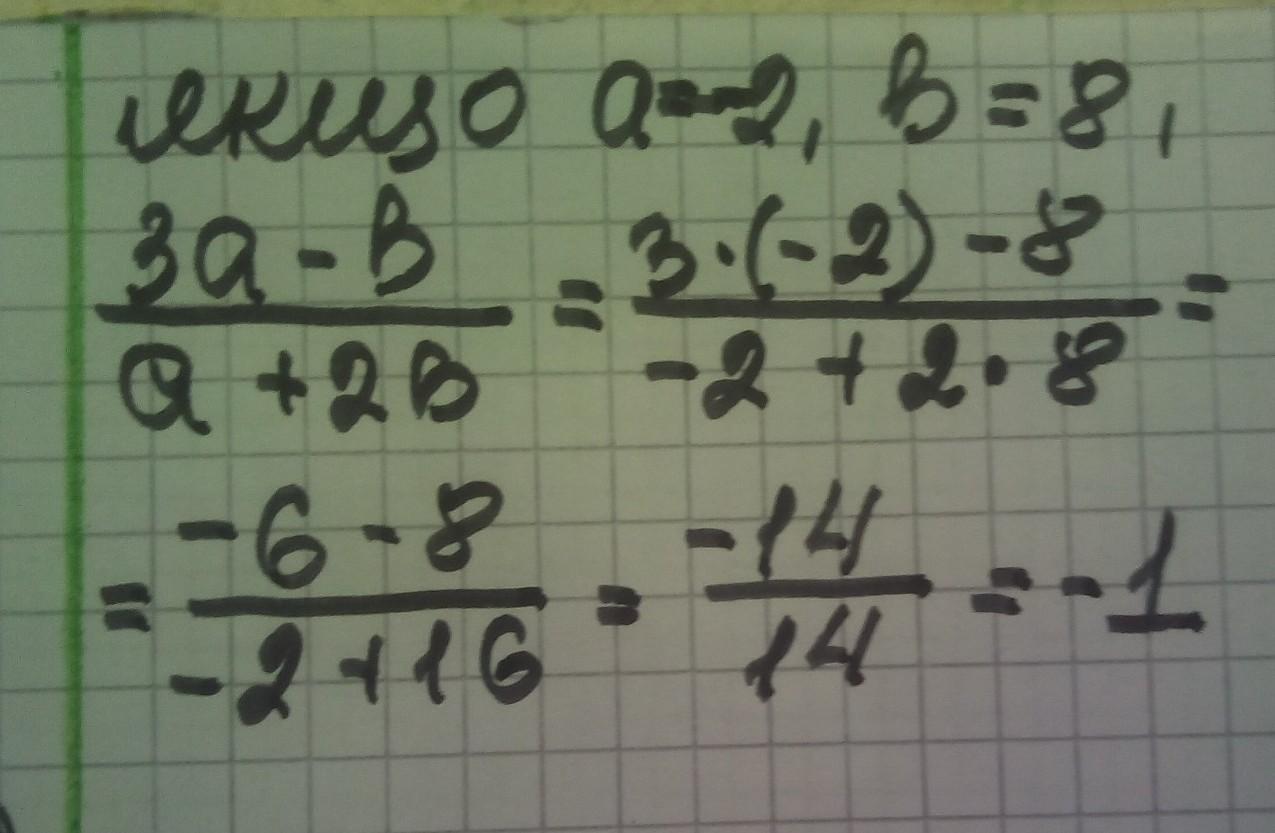 якщо a=-2, b=8,
(3a-b)/(a+2b) = (3·(-2)-8)/(-2+2·8) =
= (-6-8)/(-2+16) = (-14)/14 = -1